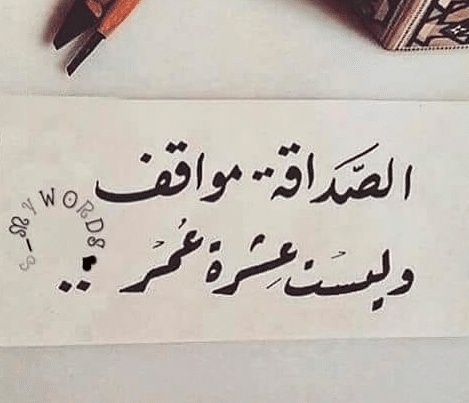 الصَّدَاقة.. مواقف
وليست عِشرة عُمر ..
MY WORDS